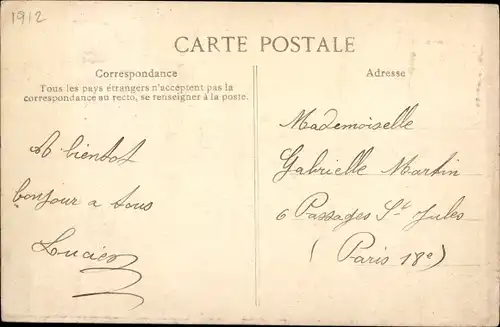 1912
CARTE POSTALE
Correspondance
Tous les pays étrangers n'acceptent pas la
correspondance au recto, se renseigner à la poste.
A bientot
bonjour a tous
Lucien
Adresse
Mademoiselle
Gabrielle Martin
6 Passages St Jules
(Paris 18e)